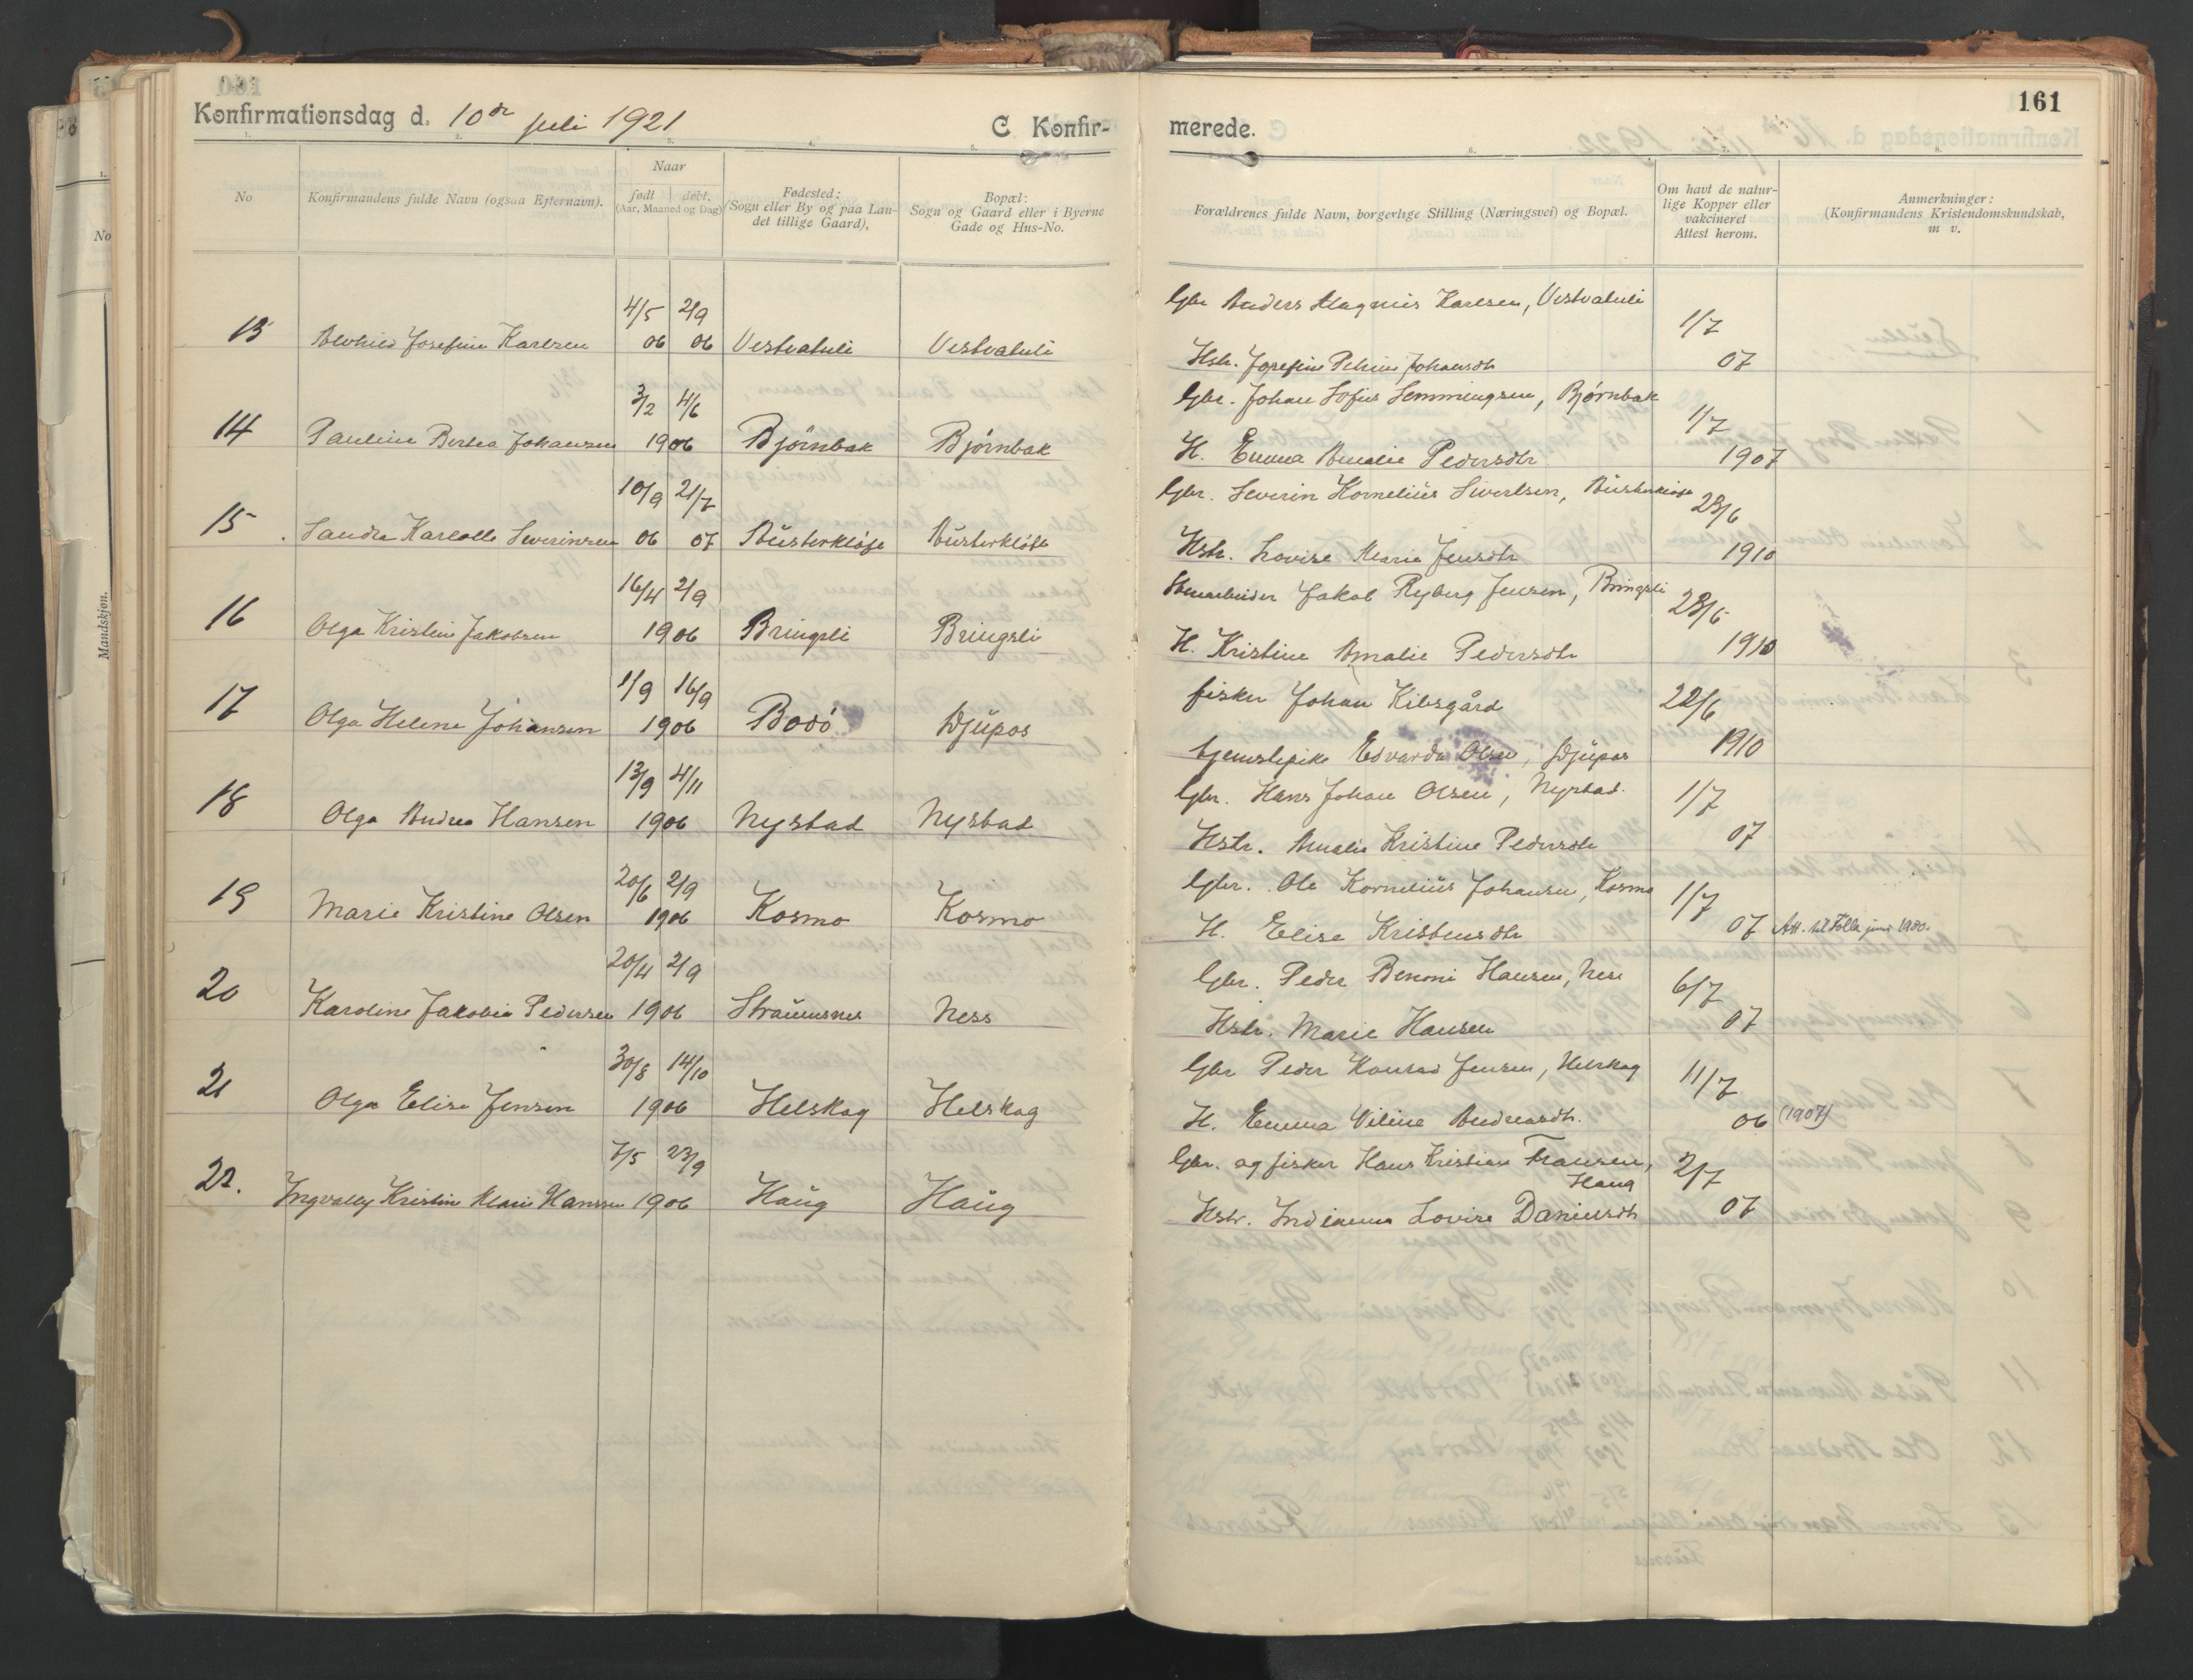 161
Konfirmationsdag d. 10de juli 1921
C Konfir-
merede.
1. 2. 3. 4. 5. 6. 7. 8.
No
Konfirmandens fulde Navn (ogsaa Efternavn).
Naar
født døbt.
(Aar, Maaned og Dag)
Fødested:
(Sogn eller By og paa Lan-
det tillige Gaard),
Bopæl:
Sogn og Gaard eller i Byerne
Gade og Hus-No.
Forældrenes fulde Navn, borgerlige Stilling (Næringsvei) og Bopæl.
Om havt de natur-
lige Kopper eller
vakcineret
Attest herom.
Anmerkninger:
(Konfirmandens Kristendomskundskab,
m v.
No
Mandskjøn.
4/5 2/9 Gbr Anders Magnus Karlsen, Vestvatuli 1/7
13 Alvhild Josefine Karlsen 06 06 Vestvatuli Vestvatuli
Hstr. Josefine Petrine Johansdtr 07
3/2 4/6 Gbr. Johan Sofus Lemmingsen, Bjørnbak 1/7
14 Pauline Bertea Johansen 1906 Bjørnbak Bjørnbak
H. Emma Amalie Pedersdtr 1907
10/9 21/7 Gbr. Severin Kornelius Sivertsen, Austerkløft 23/6
15 Sandra Karlotte Severinsen 06 07 Austerkløft Austerkløft
Hstr. Lovise Marie Jensdtr 1910
16/4 2/9 Stenarbeider Jakob Ryberg Jensen, Bringsli 23/6
16 Olga Kristine Jakobsen 1906 Bringsli Bringsli
H. Kristine Amalie Pedersdtr 1910
1/9 16/9 fisker Johan Kibsgård 22/6
17 Olga Helene Johansen 1906 Bodø Djupos
tjenestepike Edvarda Olsen, Djupos 1910
13/9 4/11 Gbr. Hans Johan Olsen, Nystad. 1/7
18 Olga Andrea Hansen 1906 Nystad Nystad
Hstr. Amalie Kristine Pedersdtr 07
20/6 2/9 Gbr. Ole Kornelius Johansen, Kosmo 1/7
19 Marie Kristine Olsen 1906 Kosmo Kosmo
H. Elise Kristensdtr 07 Att. til Folla juni 1930.
20/4 2/9 Gbr. Peder Benoni Hansen, Ness 6/7
20 Karoline Jakobia Pedersen 1906 Straumsnes Ness
Hstr. Marie Hansen 07
30/8 14/10 Gbr Peder Konrad Jensen, Helskog 11/7
21 Olga Elise Jensen 1906 Helskog Helskog
H. Emma Viline Andreasdtr. 06 (1907)
7/5 23/9 Gbr. og fisker Hans Kristian Fransen, 2/7
Haug
22. Ingvally Kristine Marie Hansen 1906 Haug Haug
Hstr. Indianna Lovise Danielsdtr 07